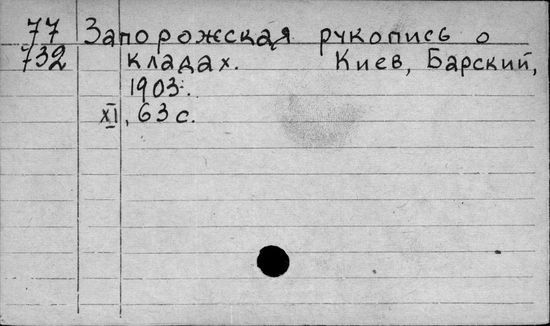 77 Запорожская рукопись о
732 кладах. Киев, Барский,
1903.
XI, 63 с.